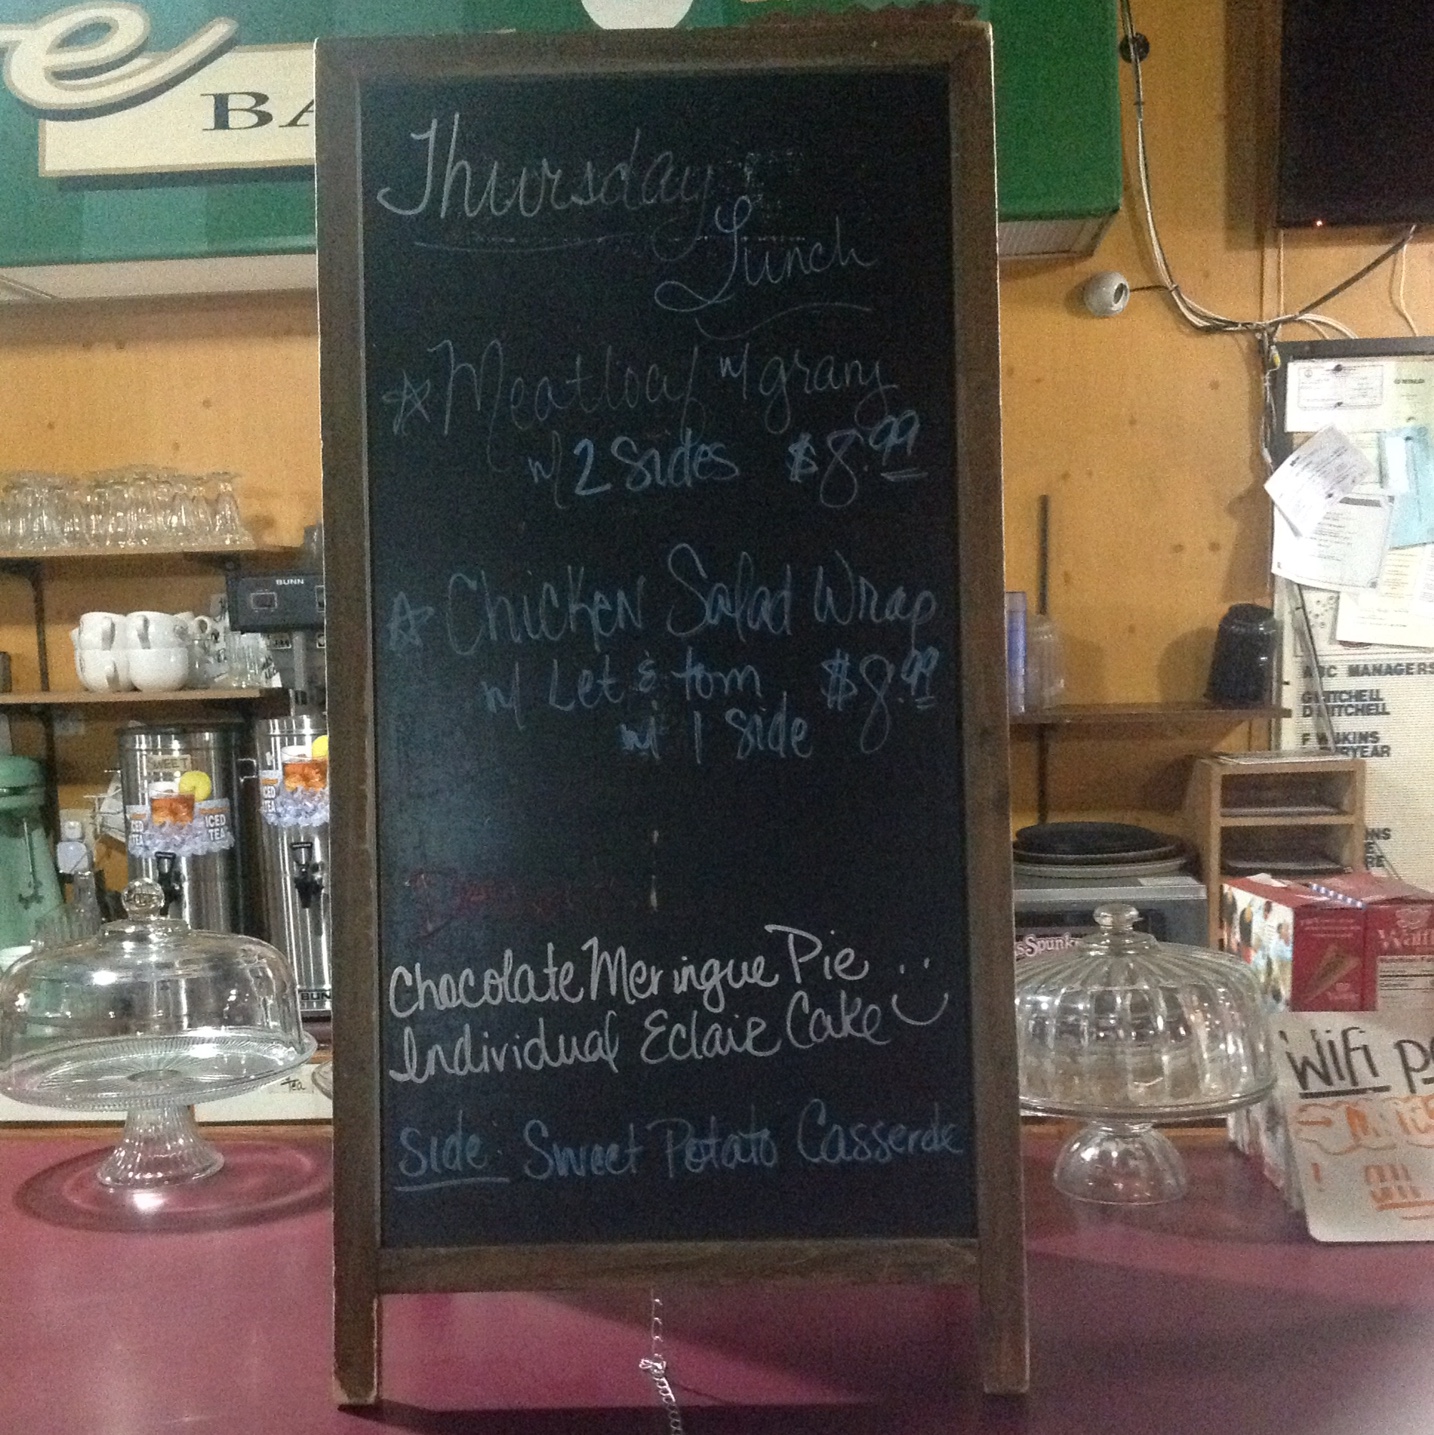 e
BA
Thursday
Lunch
Meatloaf w/ gravy
w/ 2 Sides $8.99
Chicken Salad Wrap
w/ Let & tom $8.99
w/ 1 Side
Chocolate Meringue Pie
Individual Eclair Cake
Side: Sweet Potato Casserole
BUNN
SWEET
ICED
TEA
ICED
TEA
ICED
TEA
BUN
tea
ABC MANAGERS
G MITCHELL
D MITCHELL
s Spunk
Waff
WiFi